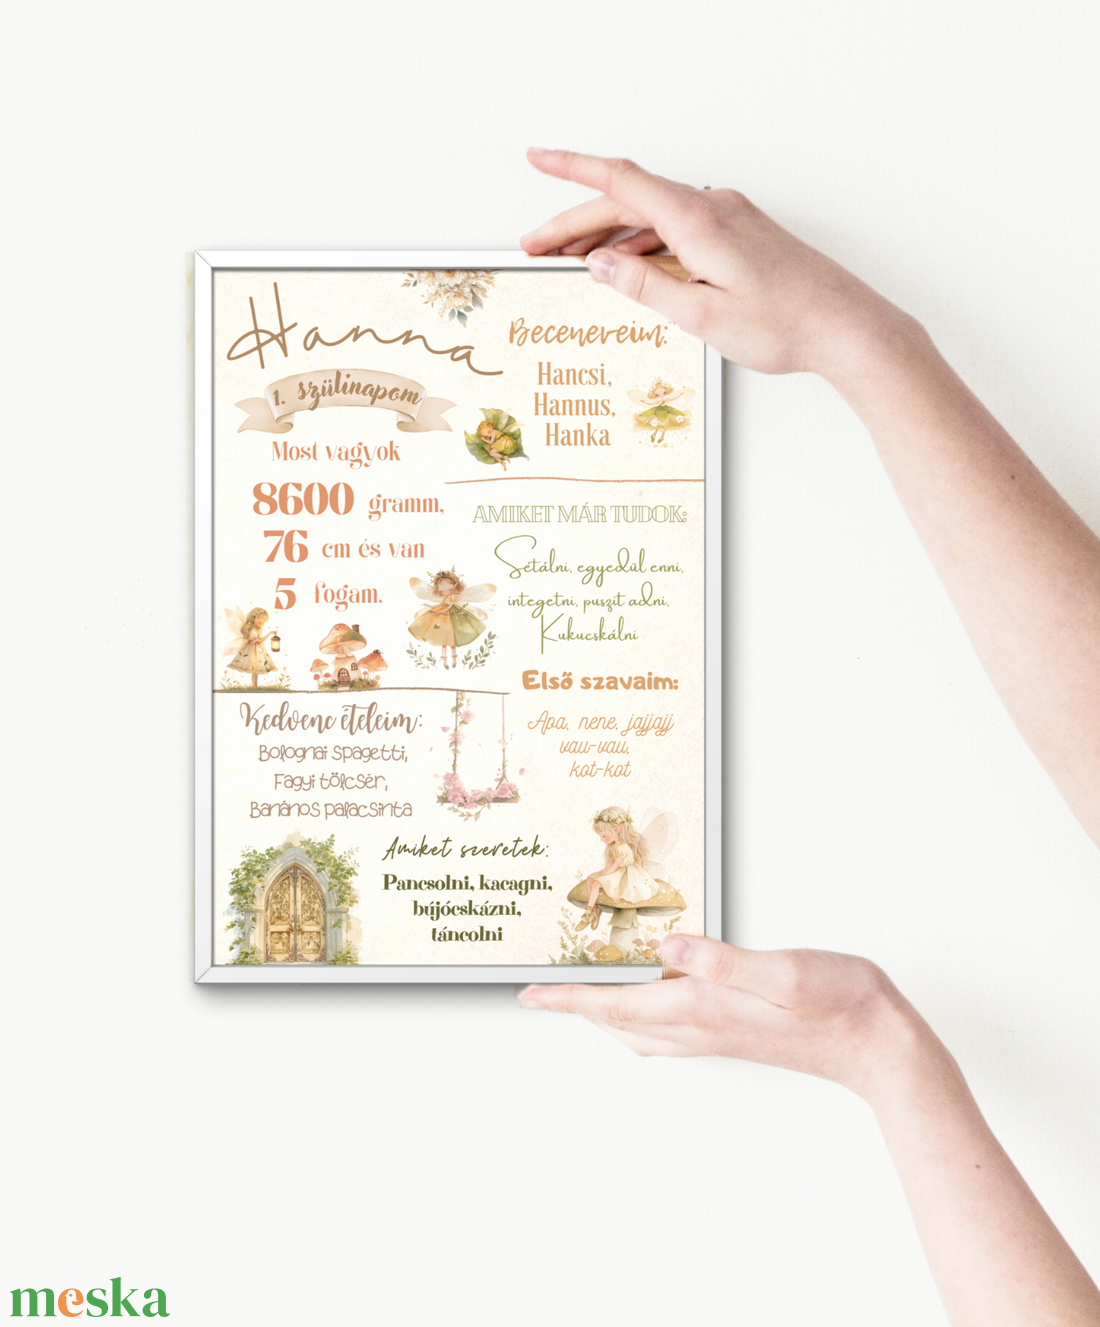 Hanna
1. szülinapom
Most vagyok
8600 gramm,
76 cm és van
5 fogam.
Becenereim:
Hancsi,
Hannus,
Hanka
AMIKET MÁR TUDOK:
Sétálni, egyedül enni,
integetni, puszit adni,
Kukucskálni
Első szavaim:
Apa, nene, jajjajj
vau-vau,
kot-kot
Kedvenc ételeim:
Bolognai spagetti,
Fagyi tölcsér,
Banános palacsinta
Amiket szeretek:
Pancsolni, kacagni,
bújócskázni,
táncolni
meska